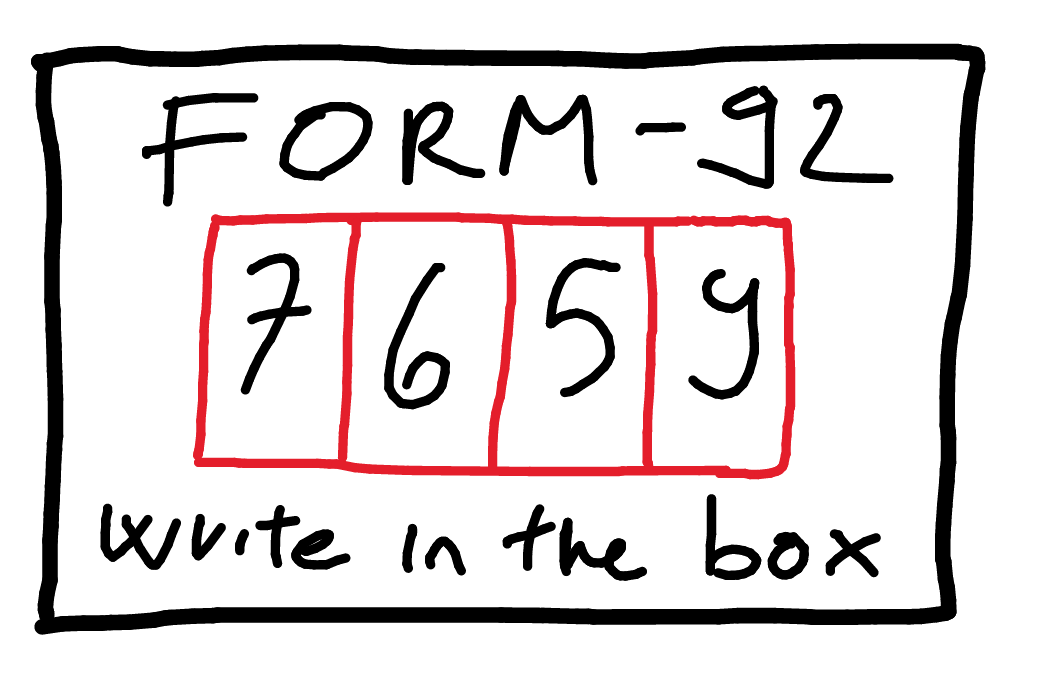 FORM-92
7659
write in the box